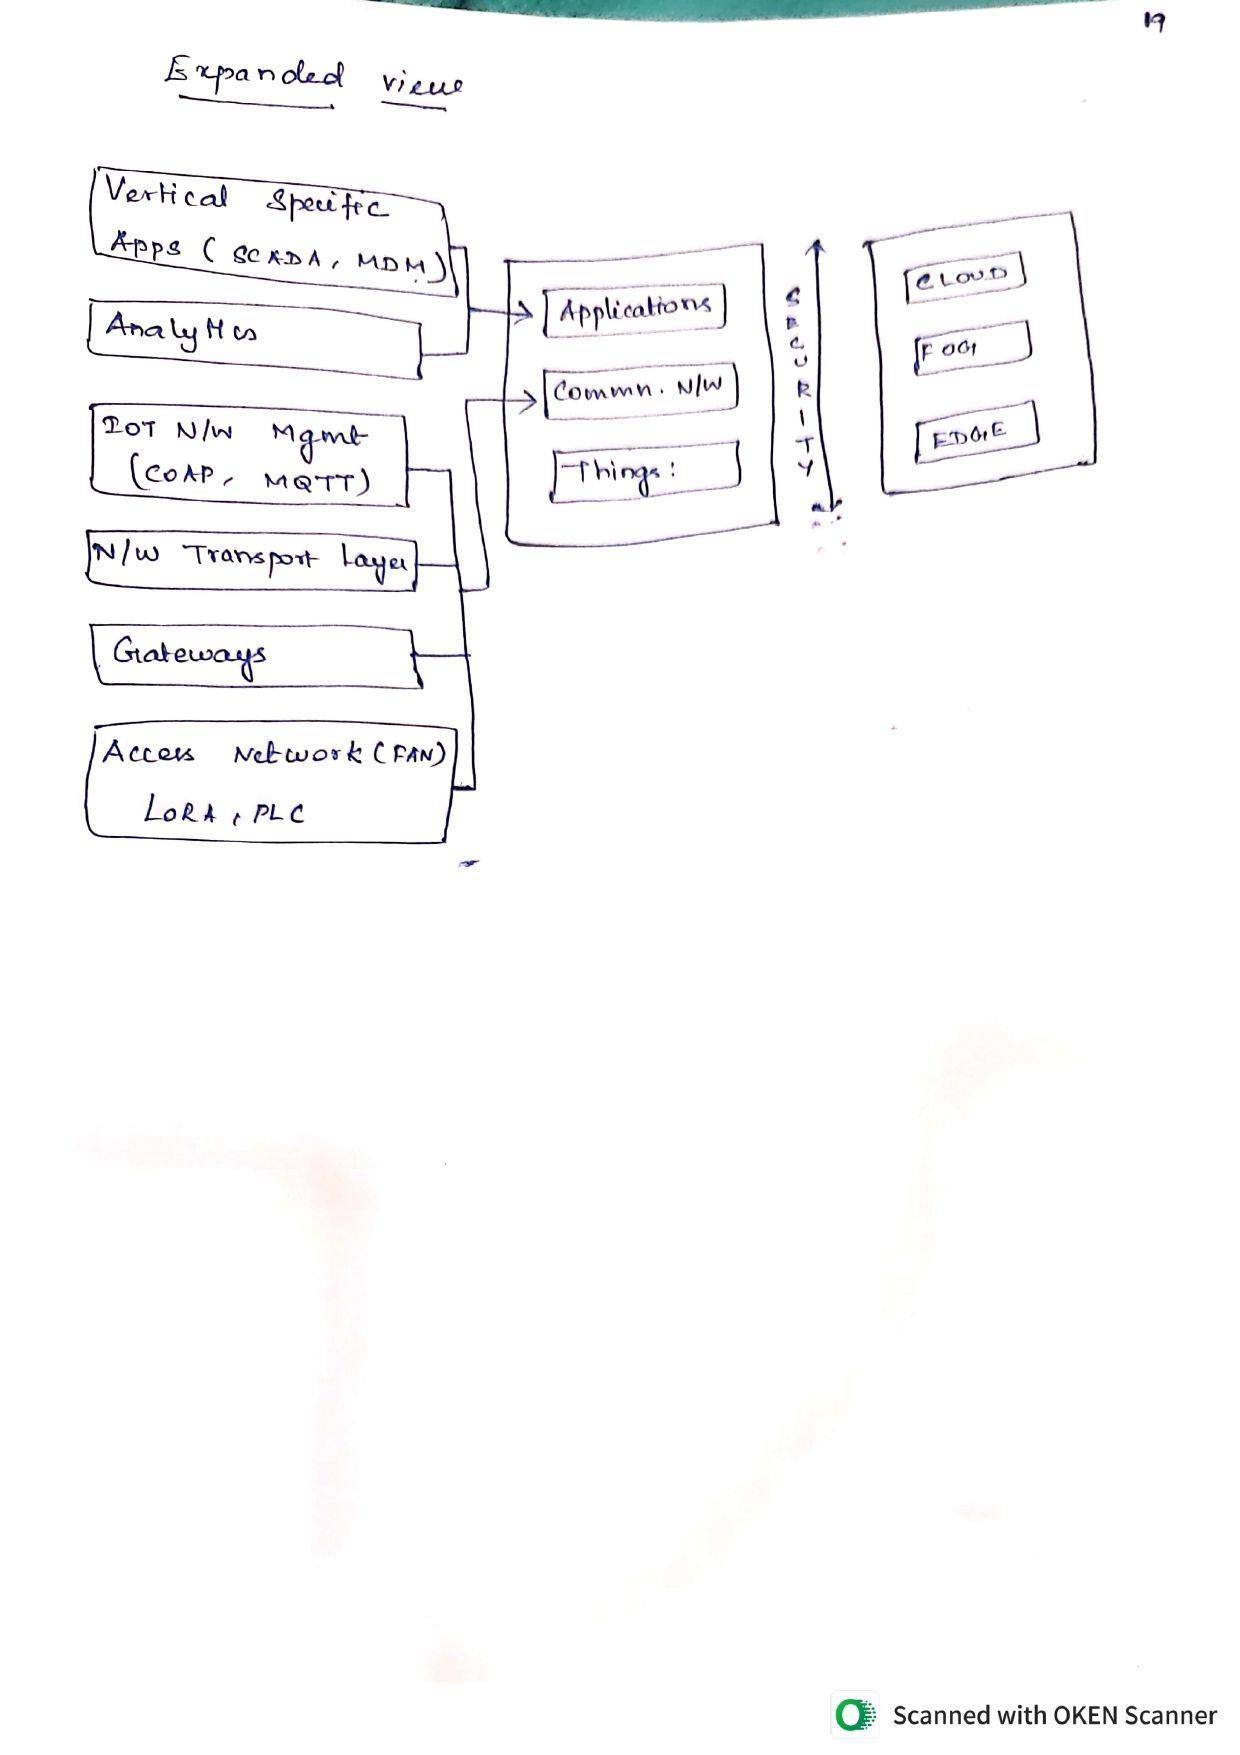 19
Expanded view
Vertical Specific
Apps (SCADA, MDM)
Analytics
IOT N/W Mgmt
(COAP, MQTT)
N/W Transport Layer
Gateways
Access Network (FAN)
LORA, PLC
Applications
Commn. N/W
Things:
SECURITY
CLOUD
FOG
EDGE
Scanned with OKEN Scanner